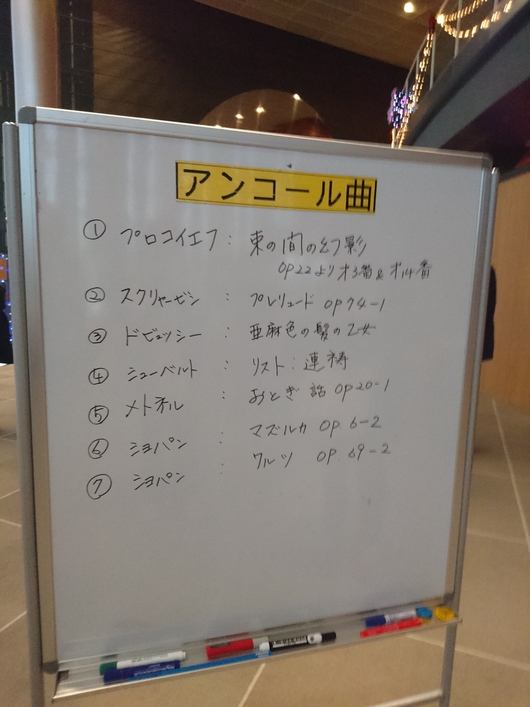 アンコール曲
① プロコイエフ : 束の間の幻影
OP22より才3番&才14番
② スクリャービン : プレリュード OP74-1
③ ドビュッシー : 亜麻色の髪の乙女
④ シューベルト : リスト:連祷
⑤ メトネル : おとぎ話 OP20-1
⑥ ショパン : マズルカ OP.6-2
⑦ ショパン : ワルツ OP.69-2